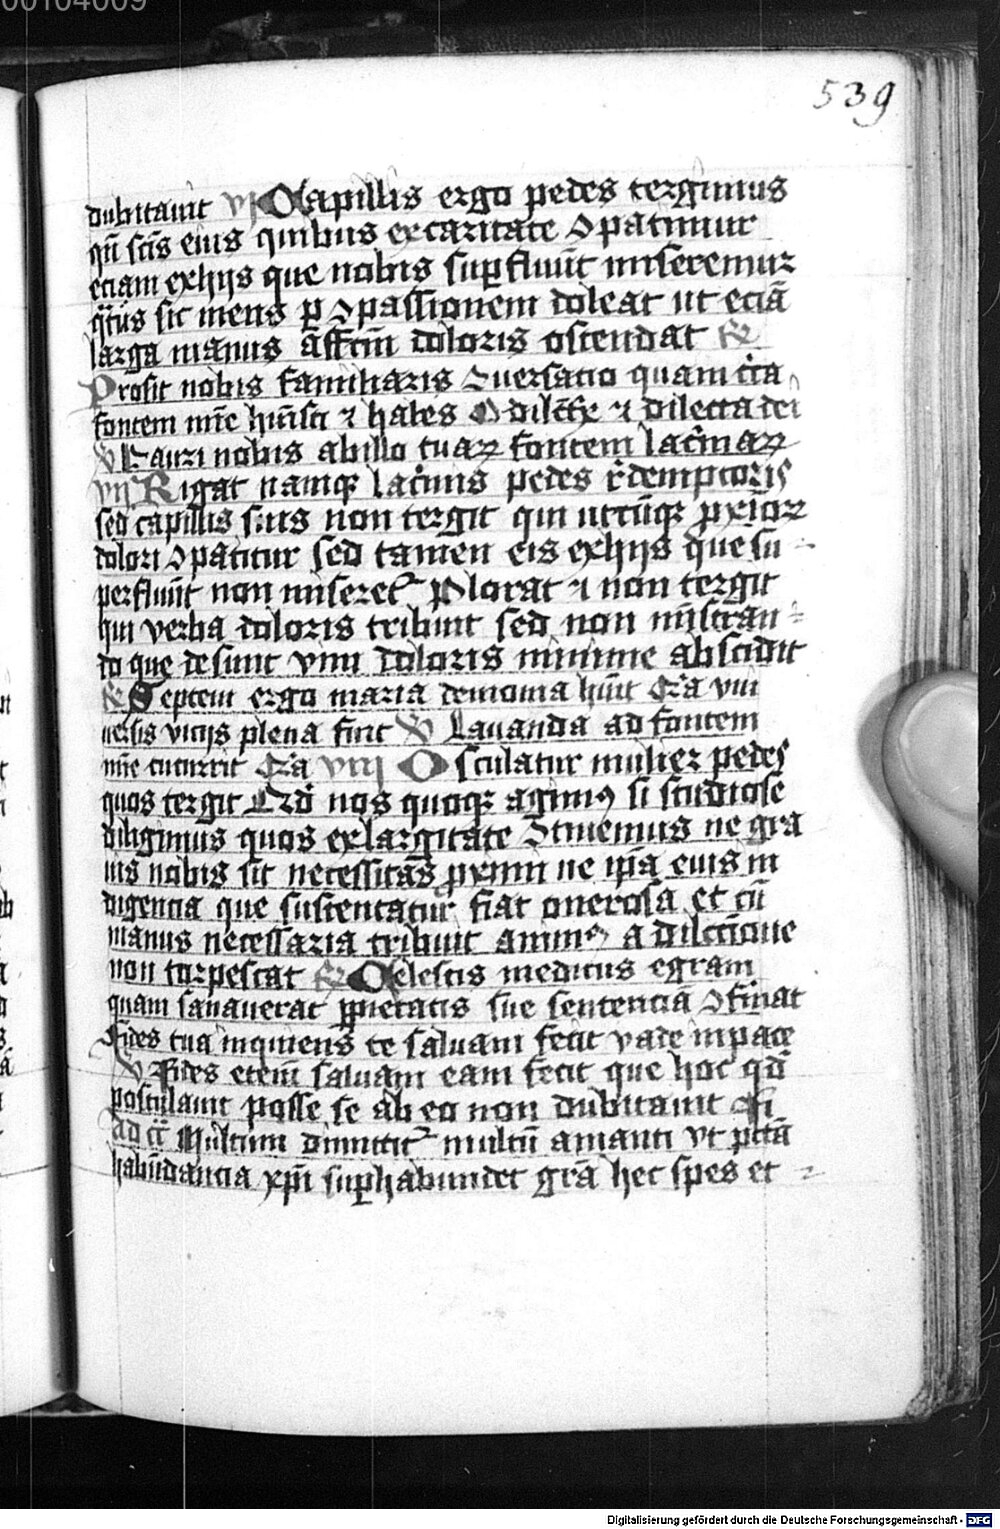 00104009
539
dubitauit vj Capillis ergo pedes tergimus
qn̄ sc̄is eius quibus ex caritate ꝯpatimur
eciam ex hijs que nobis suꝑfluūt miseremur
q̄tꝰ sic mens ꝑ ꝯpassionem doleat ut eciā
larga manus affc̄m doloris ostendat ℟
Prosit nobis familiaris ꝯuersacio quam c̄ca
fontem mīe hūisti ⁊ habes O dilc̄trix ⁊ dilecta dei
℣ Hauri nobis ab illo tuaꝝ fontem lac̄maꝝ
vij Rigat namqꝫ lac̄mis pedes r̄demptoris
sed capillis suis non tergit qui utcūqꝫ ꝓximoꝝ
dolori ꝯpatitur sed tamen eis ex hijs que su
perfluūt non miseret᷑ Plorat ⁊ non tergit
qui verba doloris tribuit sed non mīstran
do que desunt vim doloris minime abscidit
℟ Septem ergo maria demonia hūit Gr̄a viii
uersis vicijs plena fuit ℣ Lauanda ad fontem
mīe cucurrit Gr̄a viij Osculatur mulier pedes
quos tergit Qd̄ nos quoqꝫ agimꝰ si studiose
diligimus quos ex largitate ꝯtinemus ne gra
uis nobis sit necessitas ꝓximi ne ip̄a eius in
digencia que sustentatur fiat onerosa et cū
manus necessaria tribuit animꝰ a dilcc̄ione
non torpescat ℟ Celestis medicus egram
quam sanauerat ꝓpietatis sue sentenciā ꝯfirmat
Fides tua inquiens te saluam fecit vade in pace
℣ Fides etenī saluam eam fecit que hoc qd̄
postulauit posse se ab eo non dubitauit
Ad Multum dimittit᷑ multū amanti vt pctā
habūdancia xp̄i suꝑhabundet gr̄a hec spes et
Digitalisierung gefördert durch die Deutsche Forschungsgemeinschaft - DFG